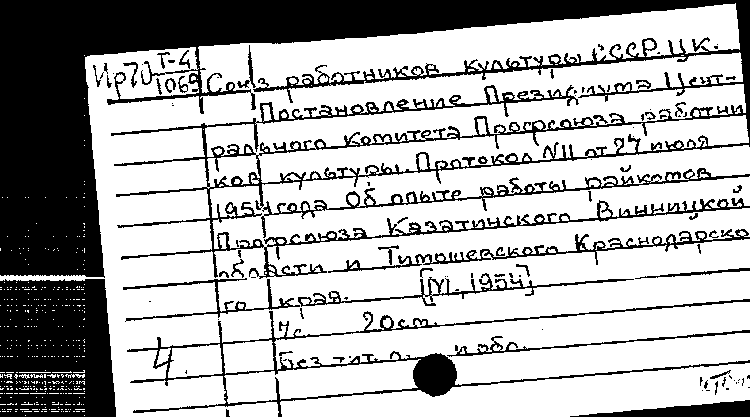 Ир70 Т-4
1069 Союз работников культуры СССР. ЦК.
Постановление Президиума Цент-
рального Комитета Профсоюза работни
ков культуры. Протокол N11 от 27 июля
1954 года Об опыте работы райкомов
Профсоюза Казатинского Винницкой
области и Тимошевского Краснодарско
го края. [М., 1954]
4с. 20см.
4. Без тит. л. и обл.